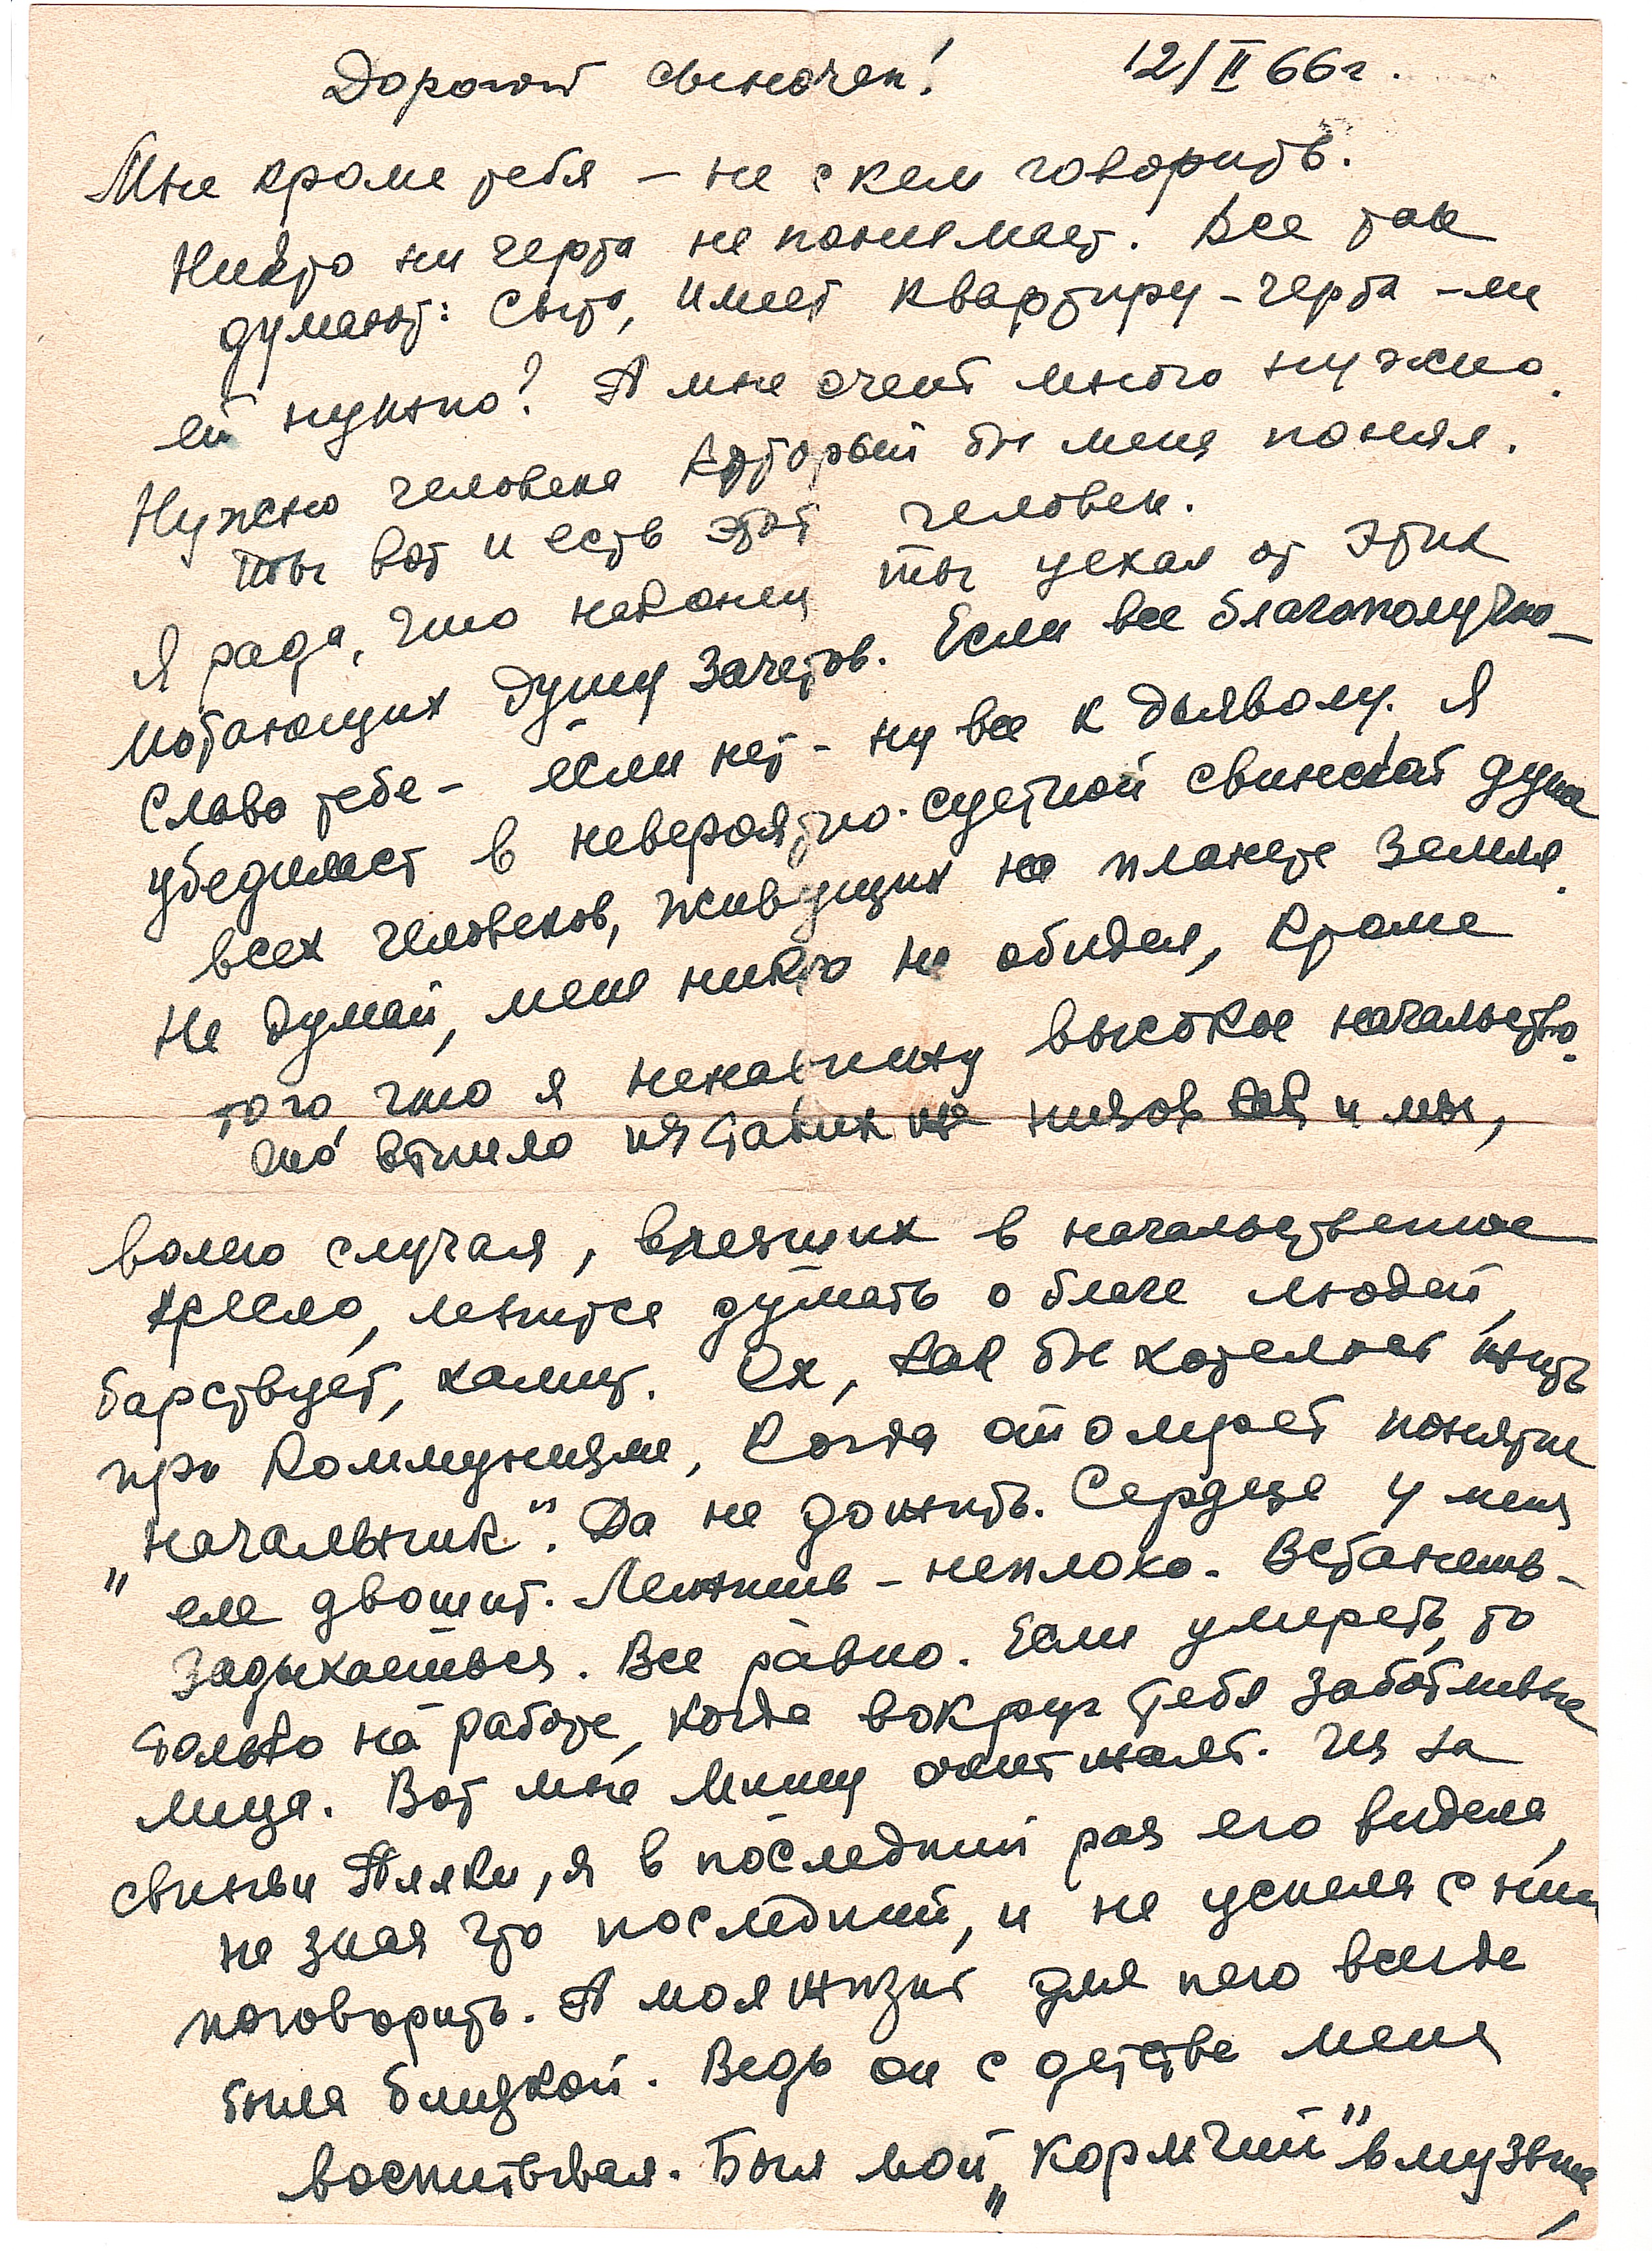 Дорогой сыночек! 12/II 66г.
Мне кроме тебя – не с кем говорить.
Никто ни черта не понимает. Все так
думают: сыта, имеет квартиру – черта – ли
ей нужно? А мне очень много нужно.
Нужно человека который бы меня понял.
Ты вот и есть этот человек.
Я рада, что наконец ты уехал от этих
мотающих душу зачетов. Если все благополучно –
слава тебе – если нет – ну все к дьяволу. Я
убедилась в невероятно-суетной свинской душе
всех человеков, живущих на планете Земля.
Не думай, меня никто не обидел, кроме
того, что я ненавижу высокое начальство.
из таких же низов как и мы,
волею случая, в начальственное
кресло, ленится думать о благе людей,
барствует, хамит. Ох, как бы хотелось жить
при Коммунизме, когда отомрет понятие
„начальник". Да не дожить. Сердце у меня
еле двошит. Лежишь – неплохо. Встанешь –
задыхаешься. Все равно. Если умереть, то
только на работе, когда вокруг тебя заботливые
лица. Вот мне Мишу очень жаль. Из за
свиньи Аллки, я в последний раз его видела,
не зная что последний, и не успела с ним
поговорить. А моя жизнь для него всегда
была близкой. Ведь он с детства меня
воспитывал. Был мой „кормчий" в музыке,